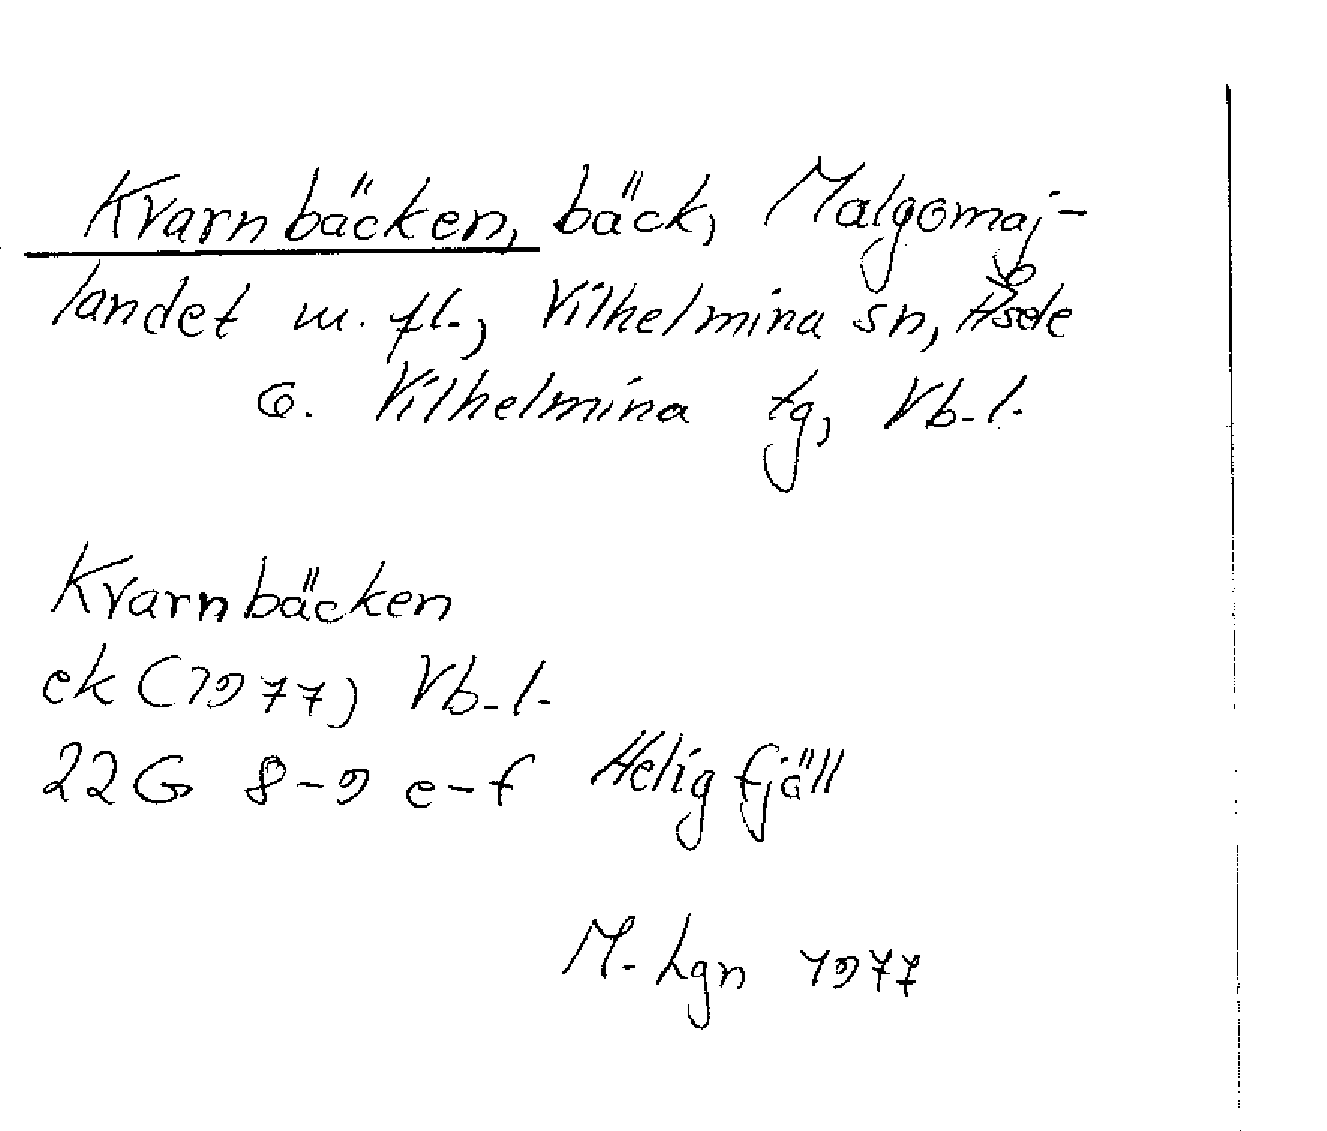 Kvarnbäcken, bäck, Malgomaj-
landet m. fl., Vilhelmina sn, Åsele
o. Vilhelmina tg, Vb. l.
Kvarnbäcken
ek (1977) Vb. l.
22G 8-9 e-f Heligfjäll
M. Lgn 1977